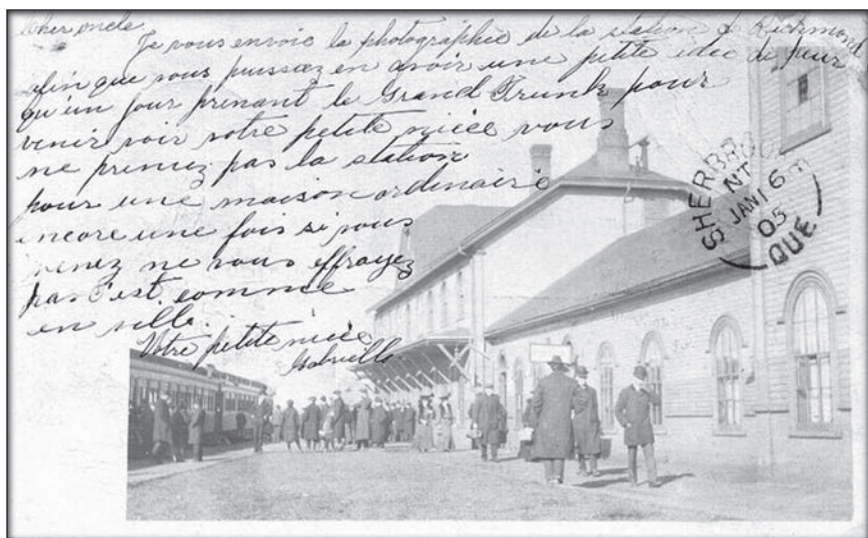 Cher oncle
Je vous envoie la photographie de la station de Richmond
afin que vous puissiez en avoir une petite idée de peur
qu'un jour prenant le Grand Trunk pour
venir voir votre petite nièce vous
ne preniez pas la station
pour une maison ordinaire
encore une fois si vous
venez ne vous effrayez
pas c'est comme
en ville.
Votre petite nièce
Gabrielle
SHERBROOKE
JAN 16
05
QUE